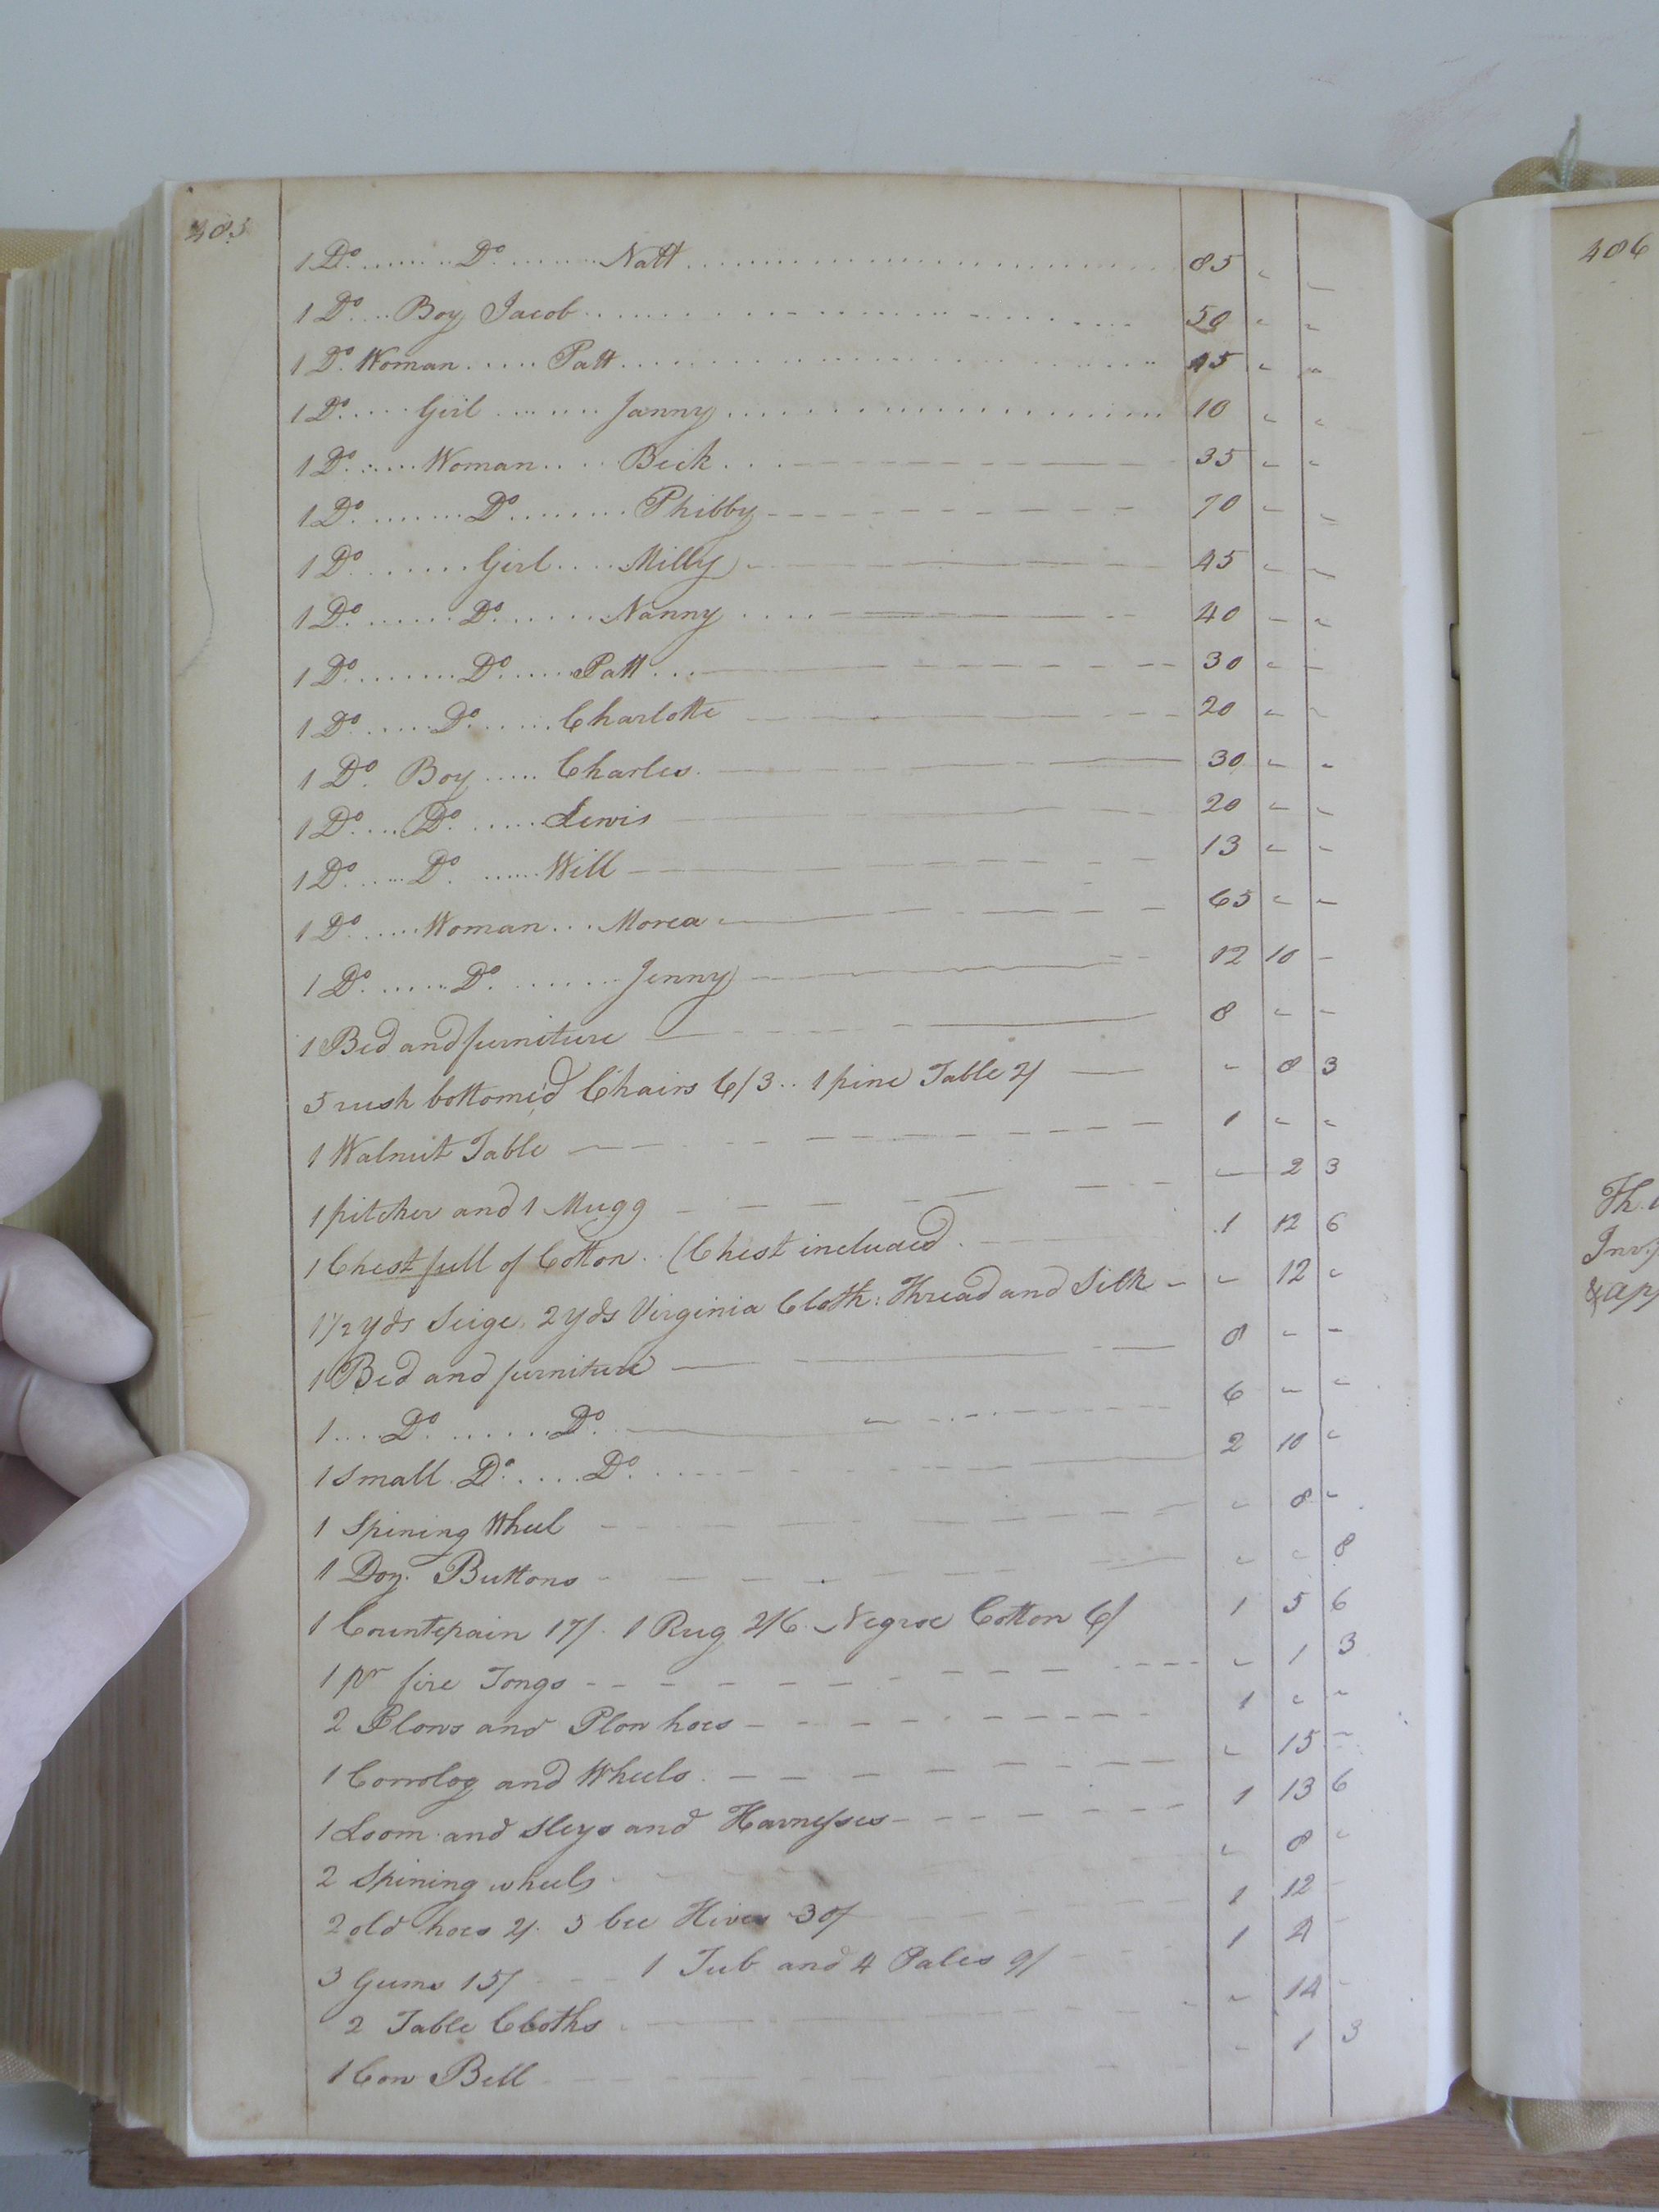 485
1 Do. ........ Do ........ Natt ........ 85 - -
1 Do. ... Boy Jacob ........ 50 - -
1 Do. Woman ..... Patt ........ 45 - -
1 Do. .... Girl ....... Janny ........ 10 - -
1 Do. ..... Woman .... Beck ... 35 - -
1 Do. ....... Do ........ Phibby 70 - -
1 Do. ....... Girl .... Milly 45 - -
1 Do. ...... Do. ...... Nanny .... 40 - -
1 Do. ....... Do. ..... Patt ... 30 - -
1 Do. ..... Do. ..... Charlotte 20 - -
1 Do. Boy ..... Charles. 30 - -
1 Do. ... Do. ..... Lewis 20 - -
1 Do. .... Do. ..... Will 13 - -
1 Do. .... Woman ... Morea 65 - -
1 Do. ..... Do. ....... Jenny 12 10 -
1 Bed and furniture 8 - -
5 rush bottome'd Chairs 6/3 .. 1 pine Table 2/ - 8 3
1 Walnut Table 1 - -
1 pitcher and 1 Mugg - 2 3
1 Chest full of Cotton . (Chest included . 1 12 6
1 1/2 yds Seige, 2 yds Virginia Cloth: Thread and Silk - 12 -
1 Bed and furniture 8 - -
1 .... Do. ...... Do. 6 - -
1 Small Do. .... Do. 2 10 -
1 Spining Wheel - 8 -
1 Doz. Buttons - - 8
1 Countepain 17/. 1 Rug 2/6 Negroe Cotton 6/ 1 5 6
1 pr fire Tongs - 1 3
2 Plows and Plow hoes 1 - -
1 Corrolog and Wheels - 15 -
1 Loom and Sleys and Harnesses 1 13 6
2 Spining wheels - 8 -
2 old hoes 2/. 5 bee Hives 30/ 1 12 -
3 Gums 15/ 1 Tub and 4 Pales 9/ 1 4 -
2 Table Cloths - 14 -
1 Cow Bell - 1 3
486
Inv.y